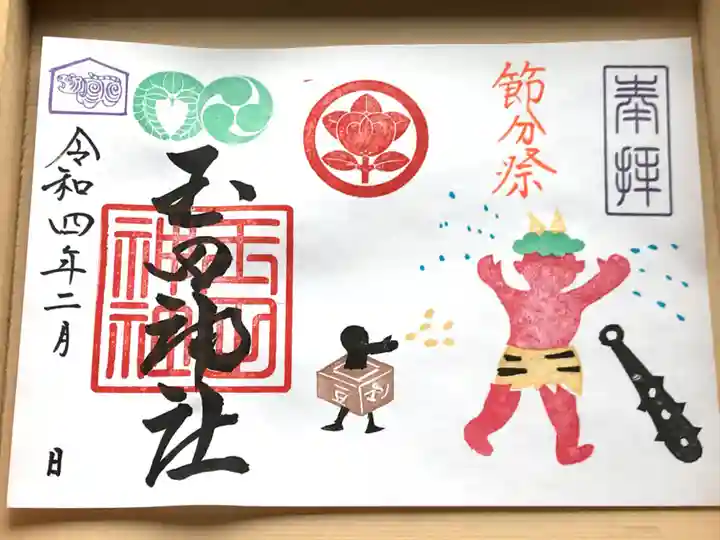 奉拝
節分祭
玉田神社
玉田
神社
令和四年二月 日
豆